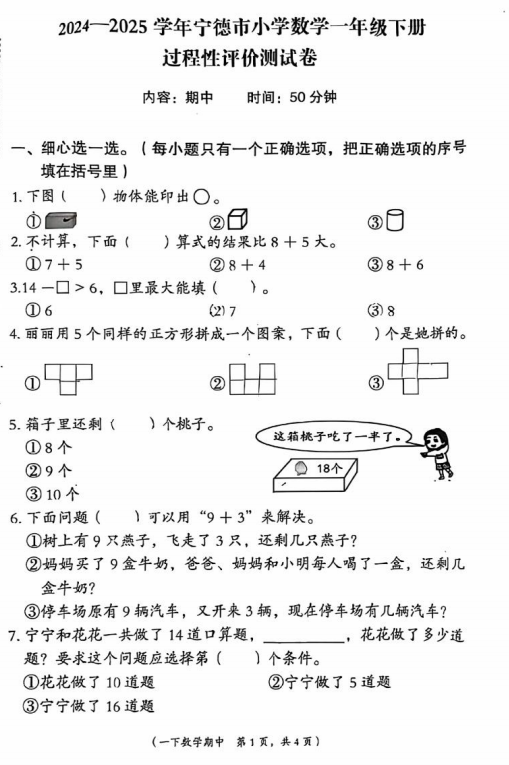 2024—2025 学年宁德市小学数学一年级下册
过程性评价测试卷
内容：期中 时间：50 分钟
一、细心选一选。（每小题只有一个正确选项，把正确选项的序号
填在括号里）
1. 下图（ ）物体能印出○。
① ② ③
2. 不计算，下面（ ）算式的结果比 8 + 5 大。
① 7 + 5 ② 8 + 4 ③ 8 + 6
3.14 －□ > 6，□里最大能填（ ）。
① 6 (2) 7 ③ 8
4. 丽丽用 5 个同样的正方形拼成一个图案，下面（ ）个是她拼的。
① ② ③
5. 箱子里还剩（ ）个桃子。
这箱桃子吃了一半了。
① 8 个
18个
② 9 个
③ 10 个
6. 下面问题（ ）可以用“9 + 3”来解决。
①树上有 9 只燕子，飞走了 3 只，还剩几只燕子？
②妈妈买了 9 盒牛奶，爸爸、妈妈和小明每人喝了一盒，还剩几
盒牛奶？
③停车场原有 9 辆汽车，又开来 3 辆，现在停车场有几辆汽车？
7. 宁宁和花花一共做了 14 道口算题，__________，花花做了多少道
题？要求这个问题应选择第（ ）个条件。
①花花做了 10 道题 ②宁宁做了 5 道题
③宁宁做了 16 道题
（一下数学期中 第 1 页，共 4 页）